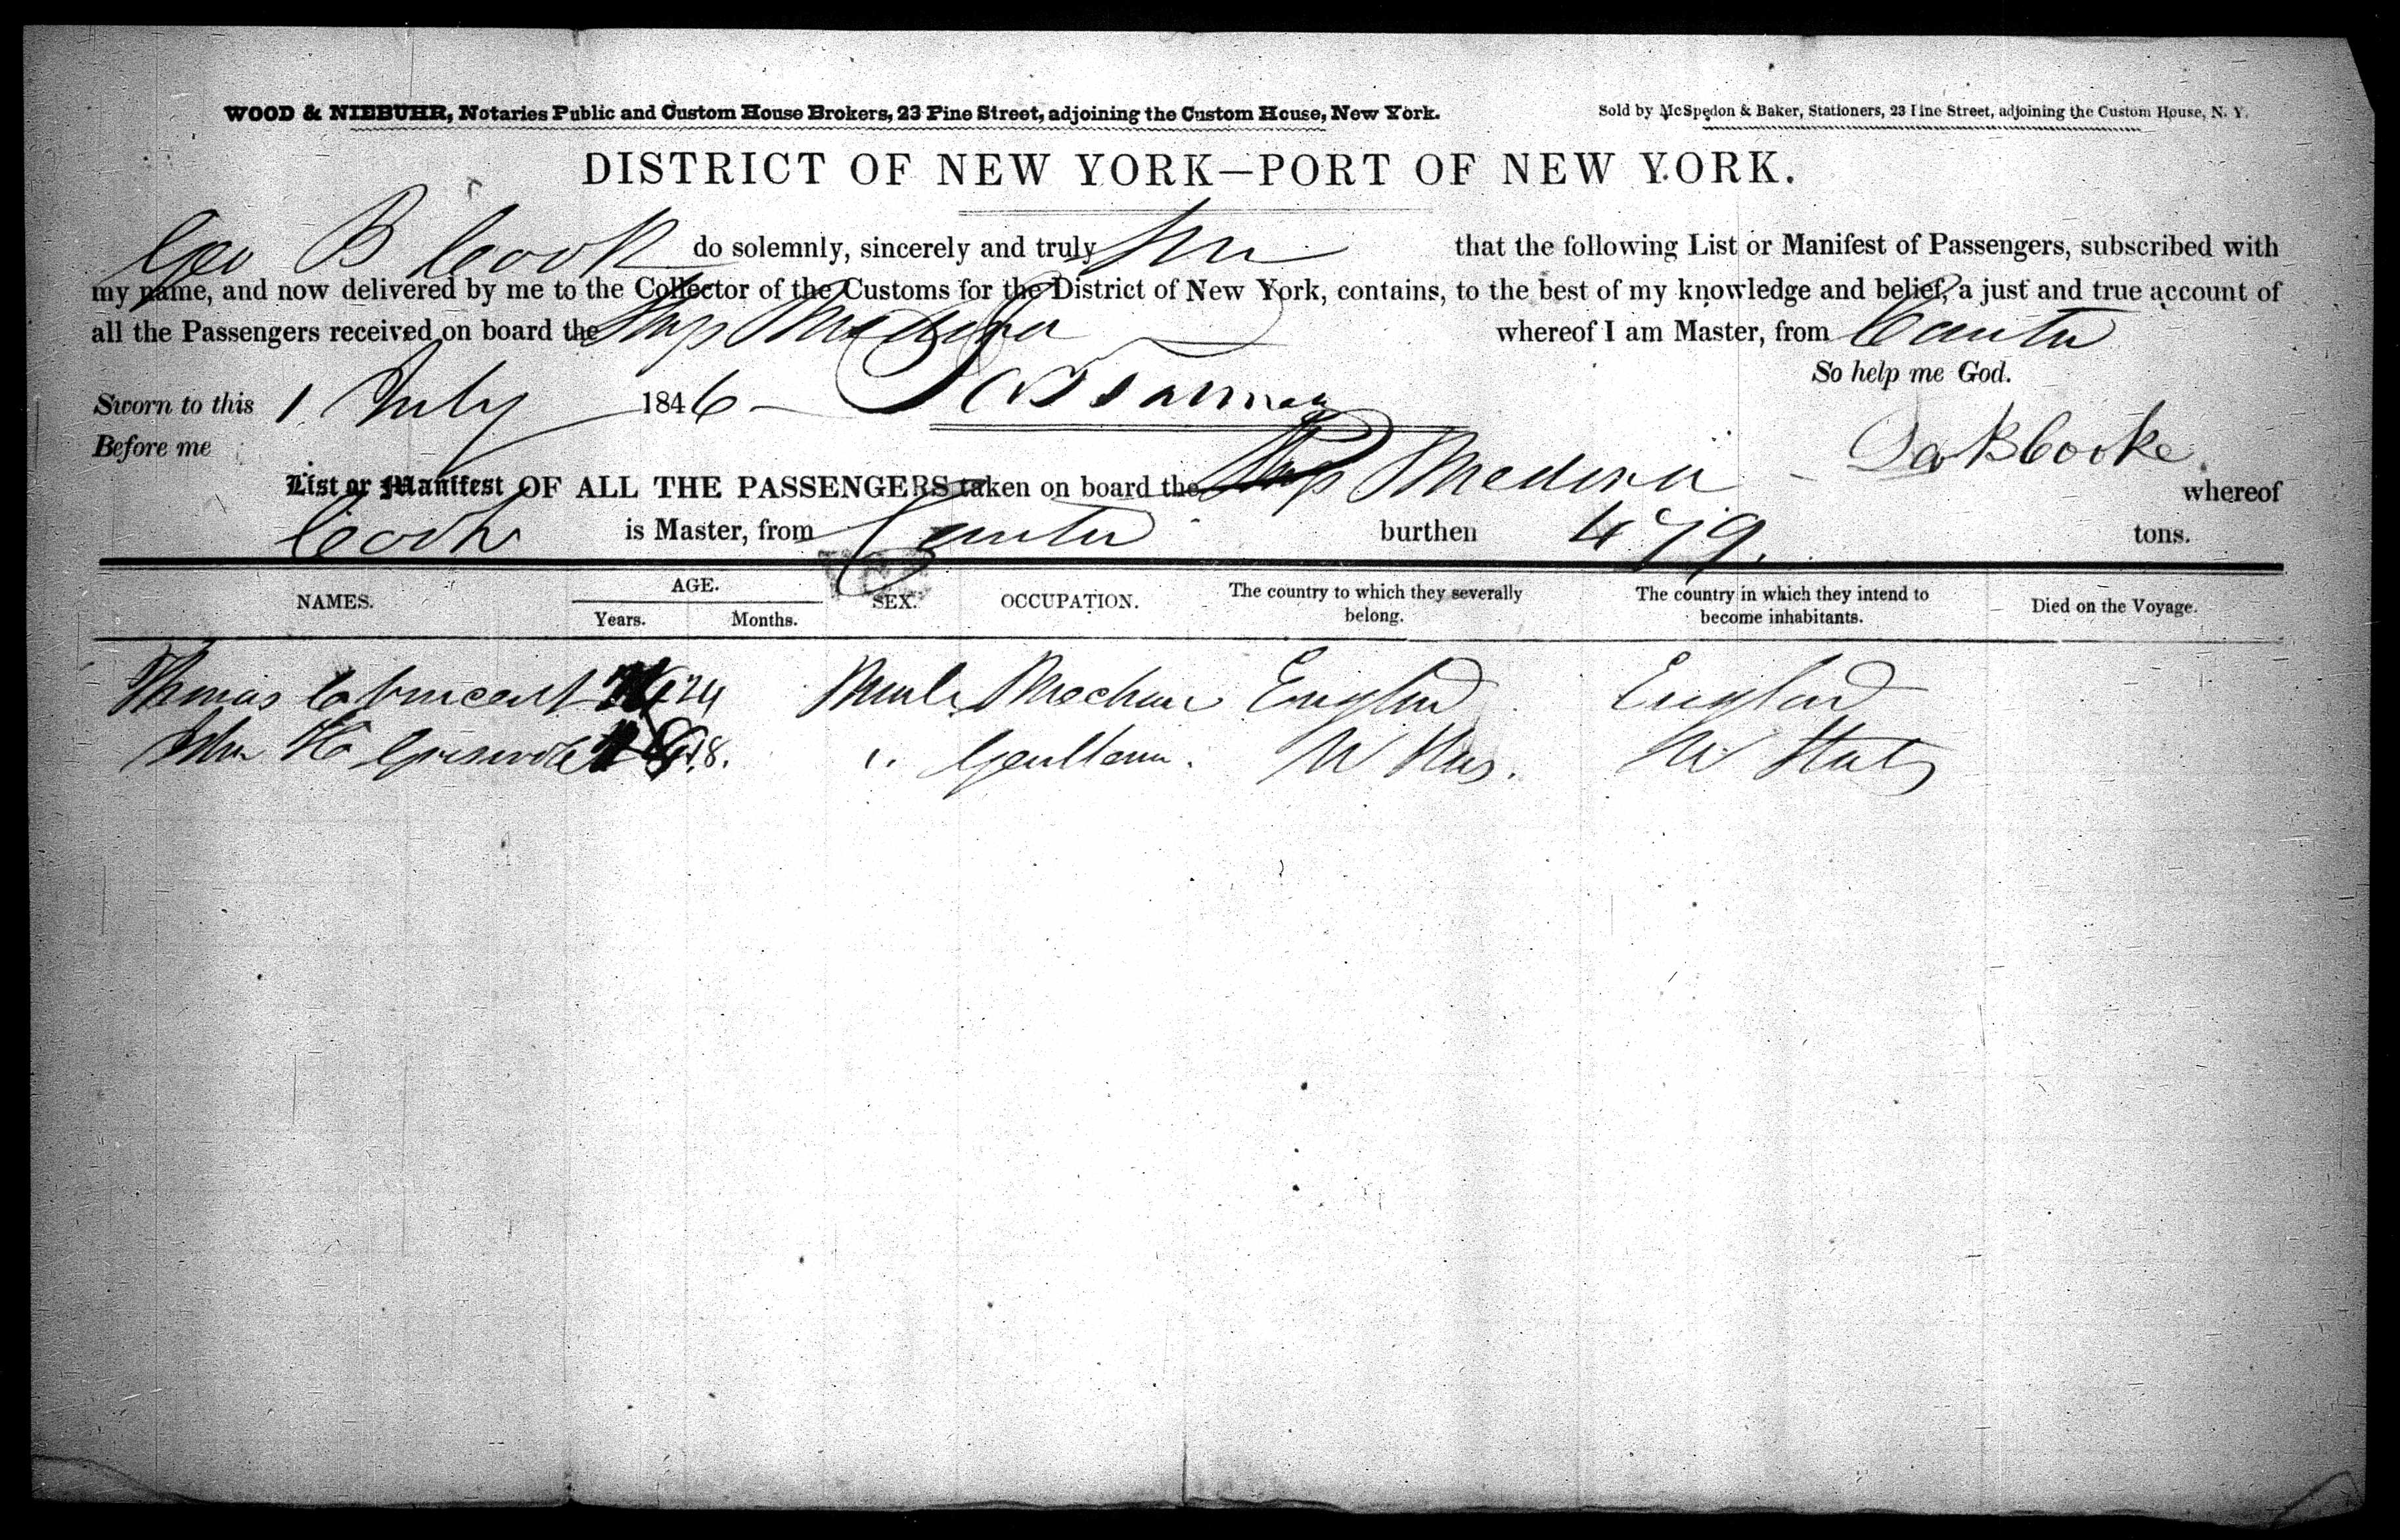 WOOD & NIEBUHR, Notaries Public and Custom House Brokers, 23 Pine Street, adjoining the Custom House, New York.
Sold by McSpedon & Baker, Stationers, 23 Pine Street, adjoining the Custom House, N. Y.
DISTRICT OF NEW YORK—PORT OF NEW YORK.
Geo B Cook do solemnly, sincerely and truly that the following List or Manifest of Passengers, subscribed with
my name, and now delivered by me to the Collector of the Customs for the District of New York, contains, to the best of my knowledge and belief, a just and true account of
all the Passengers received on board the Ship Medina whereof I am Master, from Canton
So help me God.
Sworn to this 1 July 1846
Before me
Geo B Cooke
List or Manifest OF ALL THE PASSENGERS taken on board the Ship Medina whereof
Cook is Master, from Canton burthen 479. tons.
NAMES. AGE. Years. Months. SEX. OCCUPATION. The country to which they severally belong. The country in which they intend to become inhabitants. Died on the Voyage.
Thomas 24 Male England England
John H Griswold 18. ". Gentleman. U States